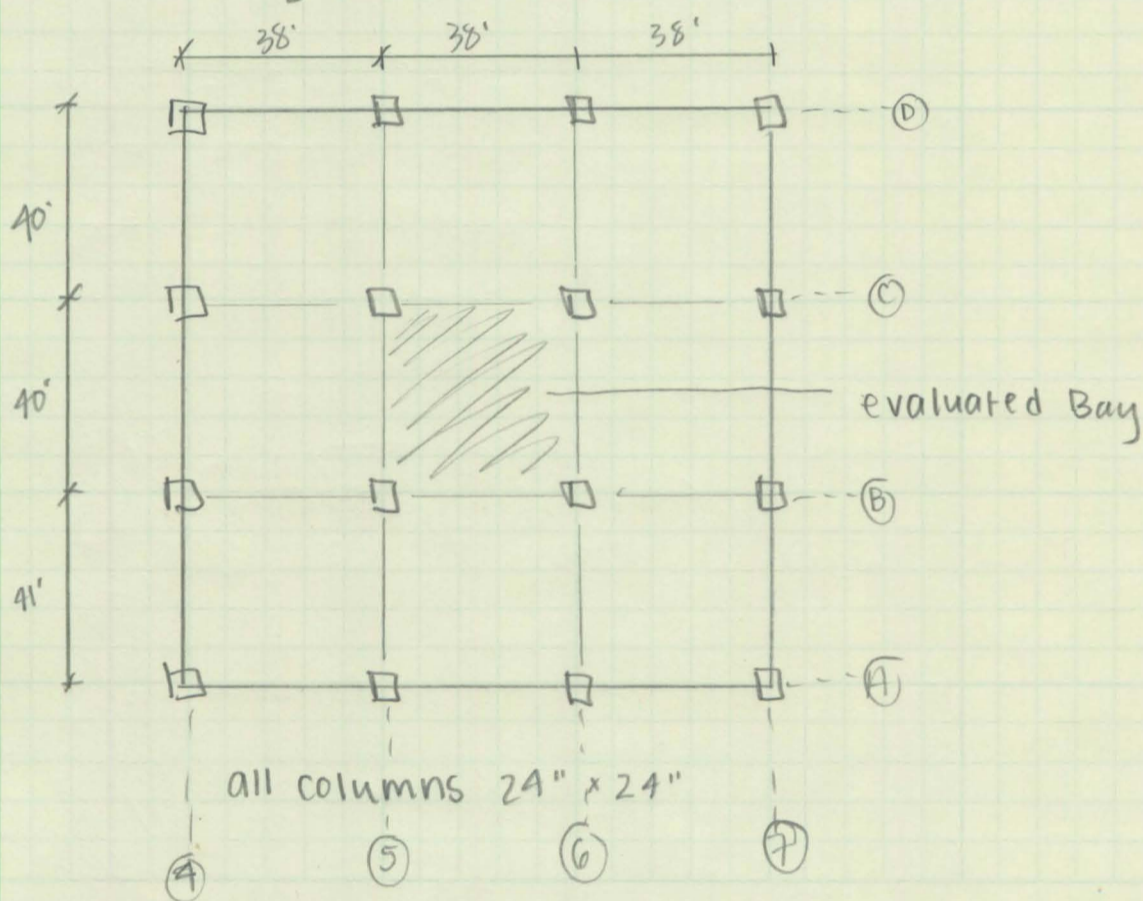 38' 38' 38'
D
40'
C
40'
evaluated Bay
B
41'
A
all columns 24" x 24"
4 5 6 7